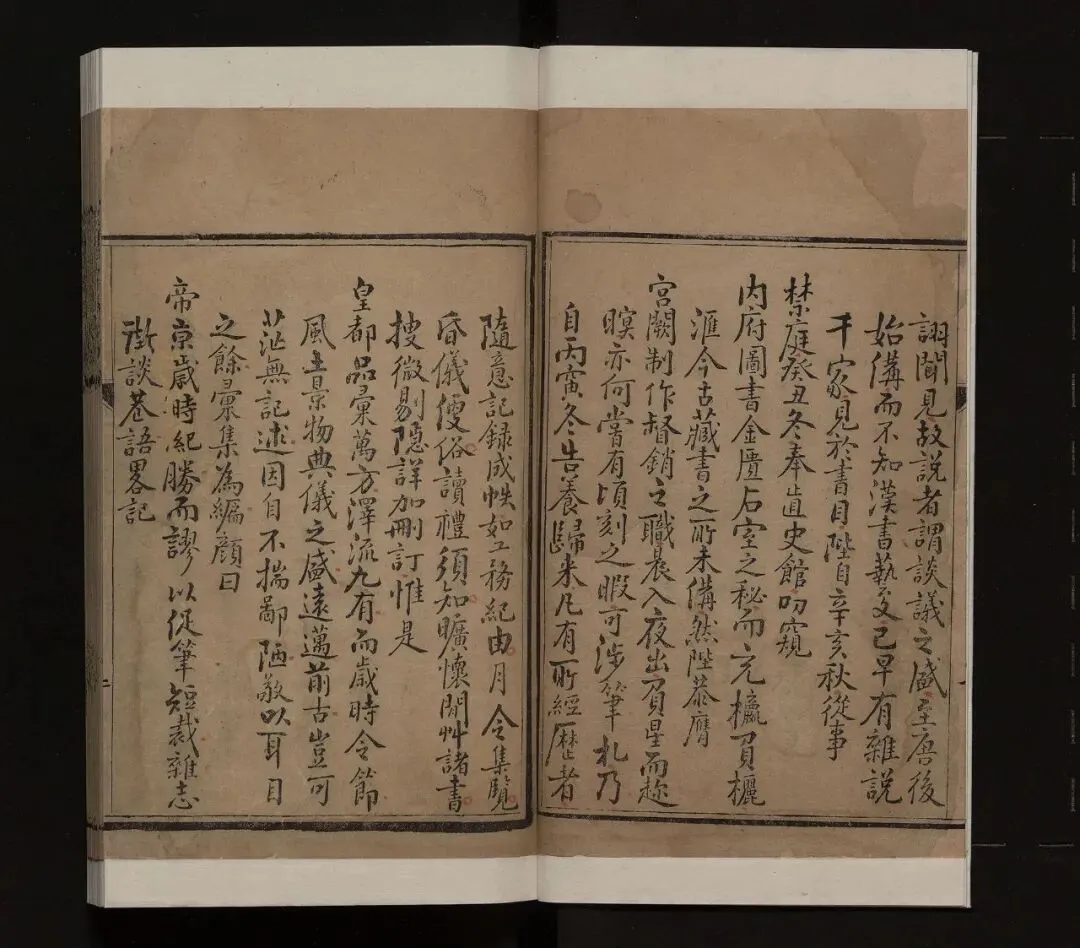 謂聞見故說者謂談議之盛至唐後
始備而不知漢書藝文已早有雜說
千家見於書目陛自辛亥秋從事
禁庭癸丑冬奉直史館叨窺
内府圖書金匱石室之秘而充楹貫櫪
滙今古藏書之所未備然陛恭膺
宫闕制作督銷之職晨入夜出貧星而趂
暝亦何嘗有頃刻之暇可涉筆札乃
自丙寅冬告養歸來凡有所經歷者
隨意記録成帙如工務紀由月令集覽
昏儀便俗讀禮須知曠懷閒艸諸書
搜微剔隱詳加刪訂惟是
皇都品彙萬方澤流九有而歲時令節
風土景物典儀之盛遠邁前古豈可
茫無記述因自不揣鄙陋敬以耳目
之餘彙集為編顔曰
帝京歲時紀勝而謬以促筆短裁雜志
街談巷語畧記